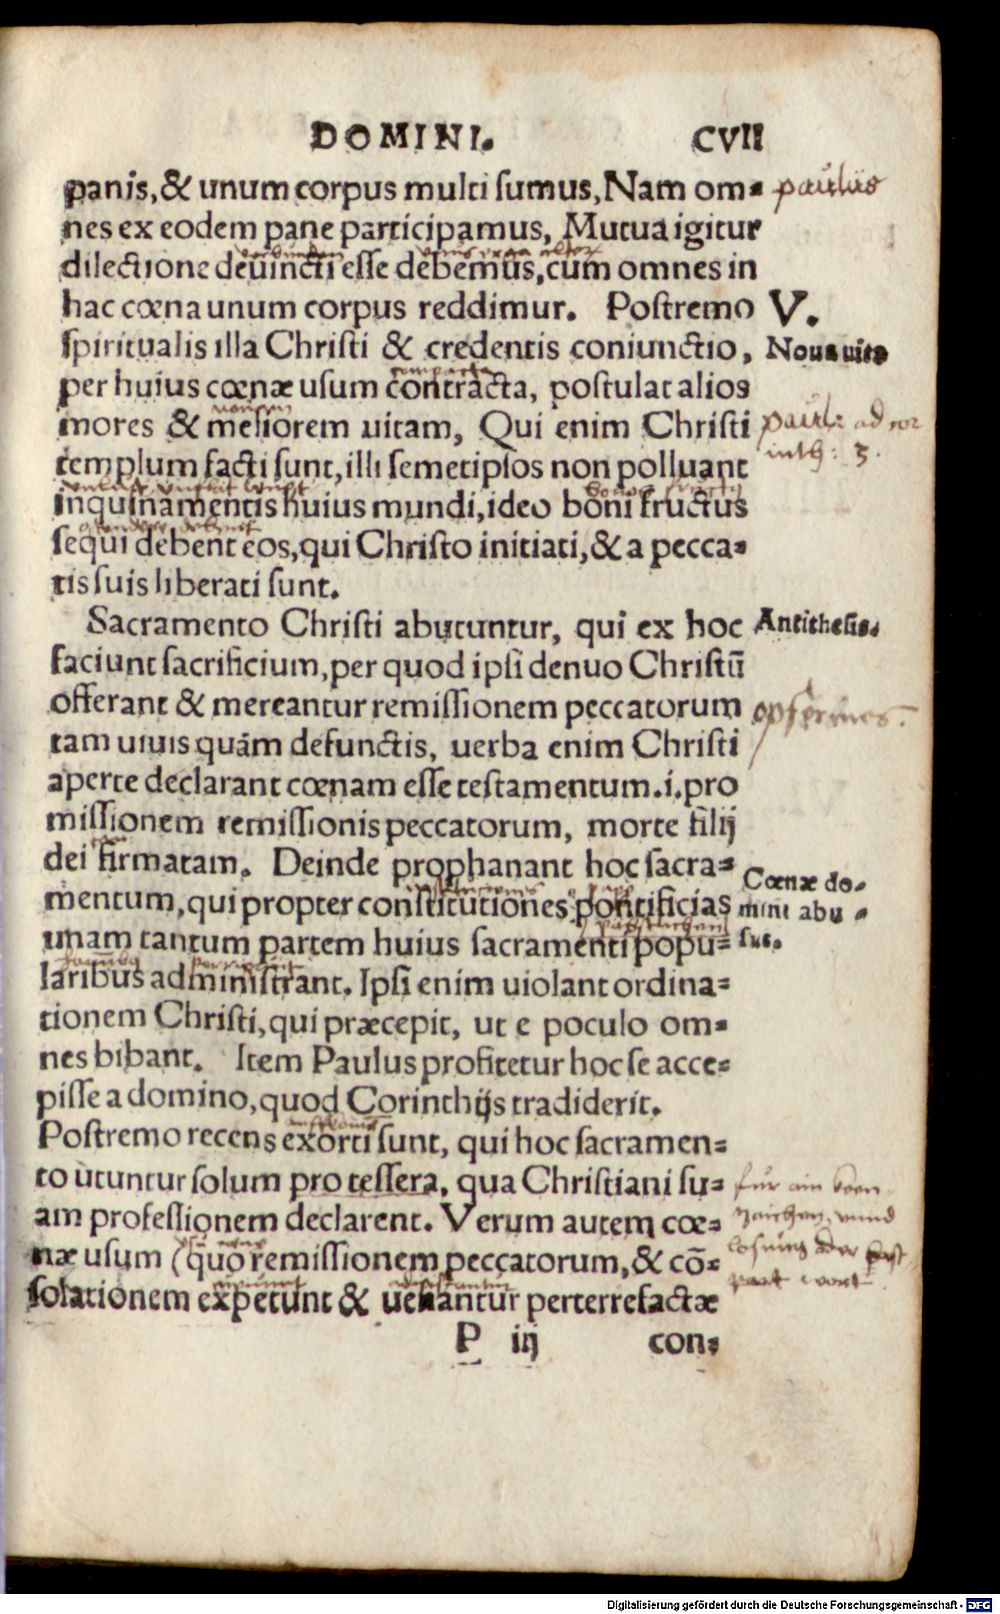 DOMINI. CVII
panis, & unum corpus multi sumus, Nam om-
paulus
nes ex eodem pane participamus, Mutua igitur
dilectione deuincti esse debemus, cum omnes in
hac cœna unum corpus reddimur. Postremo
V.
spiritualis illa Christi & credentis coniunctio,
Noua uita
per huius cœnæ usum contracta, postulat alios
mores & meliorem uitam, Qui enim Christi
paul: ad cor
templum facti sunt, illi semetipsos non polluant
inth: 3.
inquinamentis huius mundi, ideo boni fructus
sequi debent eos, qui Christo initiati, & a pecca-
tis suis liberati sunt.
Sacramento Christi abutuntur, qui ex hoc
Antithesis.
faciunt sacrificium, per quod ipsi denuo Christū
offerant & mereantur remissionem peccatorum
tam uiuis quàm defunctis, uerba enim Christi
aperte declarant cœnam esse testamentum .i. pro
missionem remissionis peccatorum, morte filij
dei firmatam. Deinde prophanant hoc sacra-
Cœnæ do-
mentum, qui propter constitutiones pontificias
mini abu-
unam tantum partem huius sacramenti popu-
sus.
laribus administrant. Ipsi enim uiolant ordina-
tionem Christi, qui præcepit, ut e poculo om-
nes bibant. Item Paulus profitetur hoc se acce-
pisse a domino, quod Corinthijs tradiderit.
Postremo recens exorti sunt, qui hoc sacramen-
to utuntur solum pro tessera, qua Christiani su-
für ain
am professionem declarent. Verum autem cœ-
næ usum (quo remissionem peccatorum, & cō-
losung oder
solationem expetunt & uenantur perterrefactæ
wort
P iij con-
Digitalisierung gefördert durch die Deutsche Forschungsgemeinschaft - DFG